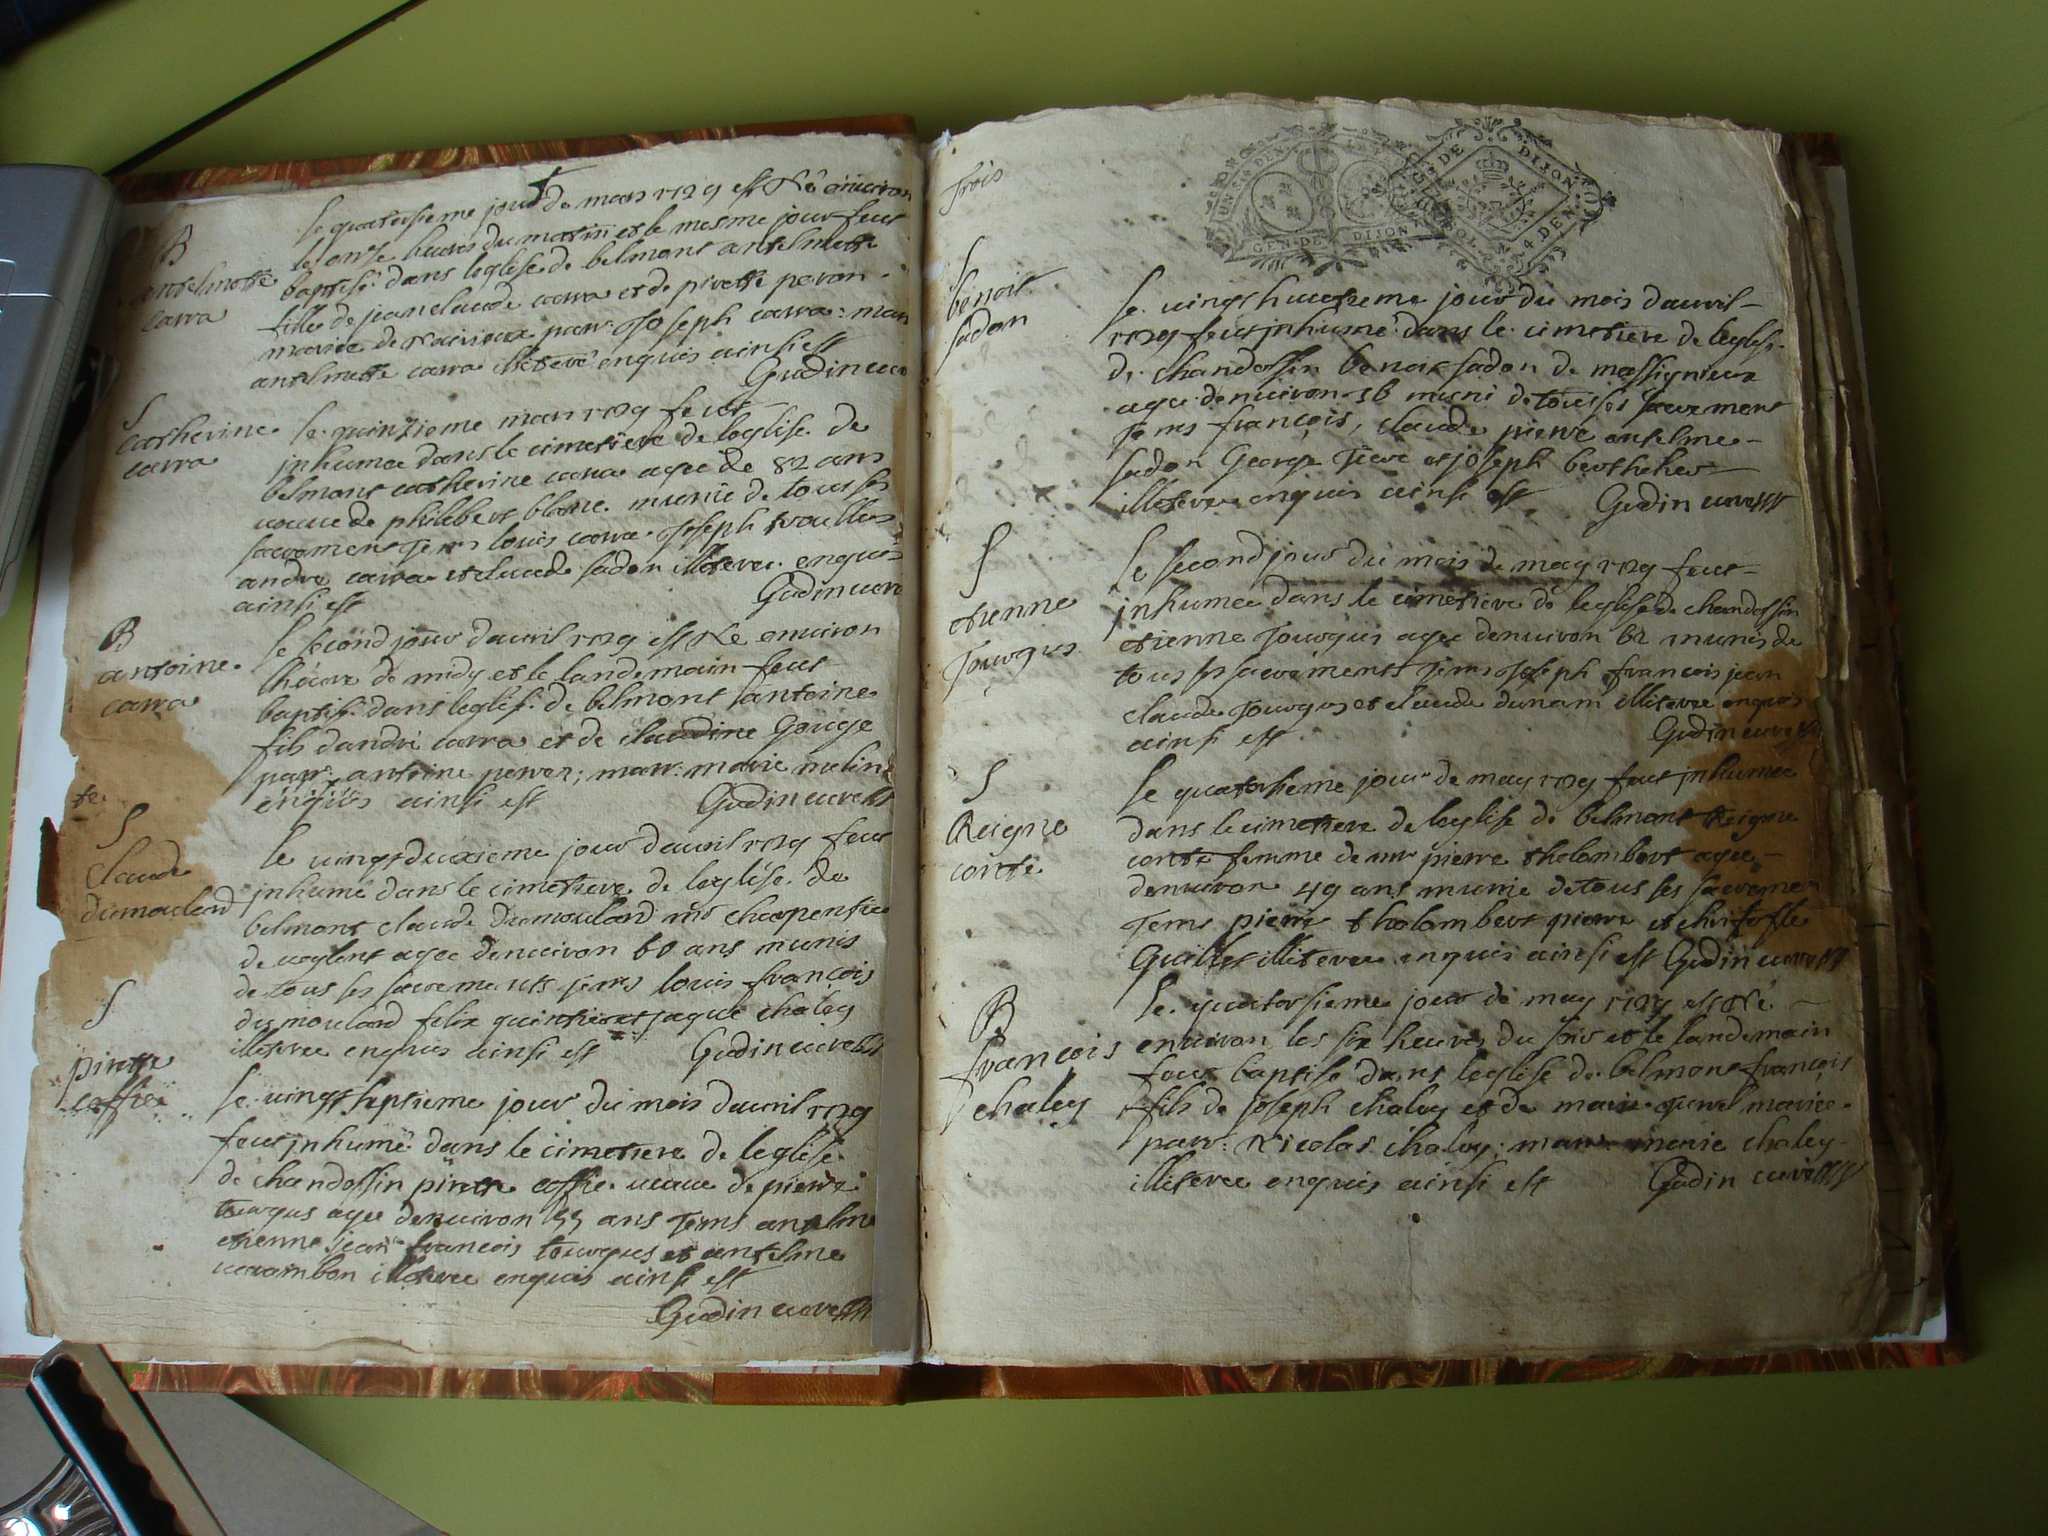 B
antelmette
carra
le quatorsieme jour de mars 1729 est Né environ
le onse heures du matin et le mesme jour feut
baptisé dans leglise de belmont antelmette
fille de jean claude carra et de pierette peron
mariée de parr: Joseph carra: marr
antelmette carra illiteré enquis ainsi est
Gudin curé
S
catherine
carra
le quinzieme mars 1729 feut
inhumee dans le cimetiere de leglise de
belmont catherine carra agee de 82 ans
veuve de philibert blanc munie de tous ses
sacrement tems louis carra Joseph
andre carra et claude sadon illiteree enquis
ainsi est
Gudin curé
B
antoine
carra
le second jour davril 1729 est Né environ
lheure de midy et le landemain feut
baptise dans leglise de belmont antoine
fils dandré carra et de claudine Gouge
parr: antoine perret; marr: marie meline
enquis ainsi est
Gudin curé
te
S
Claude
dumoulard
le vingtduxieme jour davril 1729 feut
inhumé dans le cimetiere de leglise de
belmont claude Dumoulard mr charpentier
de agee denviron 60 ans munis
de tous ses sacrements tems louis françois
dumoulard felix et jaque chaley
illiteree enquis ainsi est
Gudin curé
S
pirette
coffie
le vingt septieme jour du mois davril 1729
feut inhumé dans le cimetiere de leglise
de chandossin pirette coffie veuve de pierre
tourgus agee denviron 55 ans tems antelme
etienne jean françois tourgus et antelme
varambon illiteree enquis ainsi est
Gudin curé
trois
UN SOL 4 DEN
GEN. DE DIJON
GEN. DE DIJON
UN SOL 4 DEN
S
benoit
sadon
le vingt huitieme jour du mois davril
1729 feut inhumé dans le cimetiere de leglise
de chandossin benoit sadon de massignieux
agee denviron 36 muni de tous ses sacrement
tems françois, claude pierre antelme
sadon George et joseph berthelier
illiteree enquis ainsi est
Gudin curé
S
etienne
Tourgus
le second jour du mois de may 1729 feut
inhumee dans le cimetiere de leglise de chandossin
etienne Tourgus agee denviron 62 munis de
tous ses sacrements tems Joseph françois jean
claude Tourgus et claude dunam illiteree enquis
ainsi est
Gudin curé
S
Reigne
conte
le quatorsieme jour de may 1729 feut inhumee
dans le cimetiere de leglise de belmont Reigne
conte femme de mr pierre tholombert agee
denviron 49 ans munie de tous ses sacremen
tems pierre tholombert pierre et christofle
Guillet illiteree enquis ainsi est Gudin curé
B
françois
chaley
le quatorsieme jour de may 1729 est Né
environ les six heures du soir et le landemain
feut baptise dans leglise de belmont françois
fils de joseph chaley et de marie mariee
parr: Nicolas chaley; marr: marie chaley
illiteree enquis ainsi est
Gudin curé